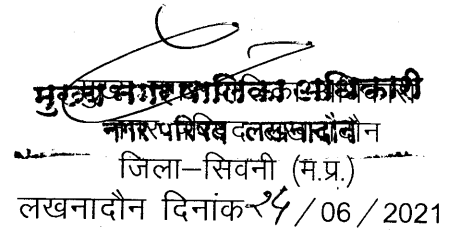 मुख्य नगर पालिका अधिकारी
नगर परिषद लखनादौन
जिला–सिवनी (म.प्र.)
लखनादौन दिनांक 24 / 06 / 2021